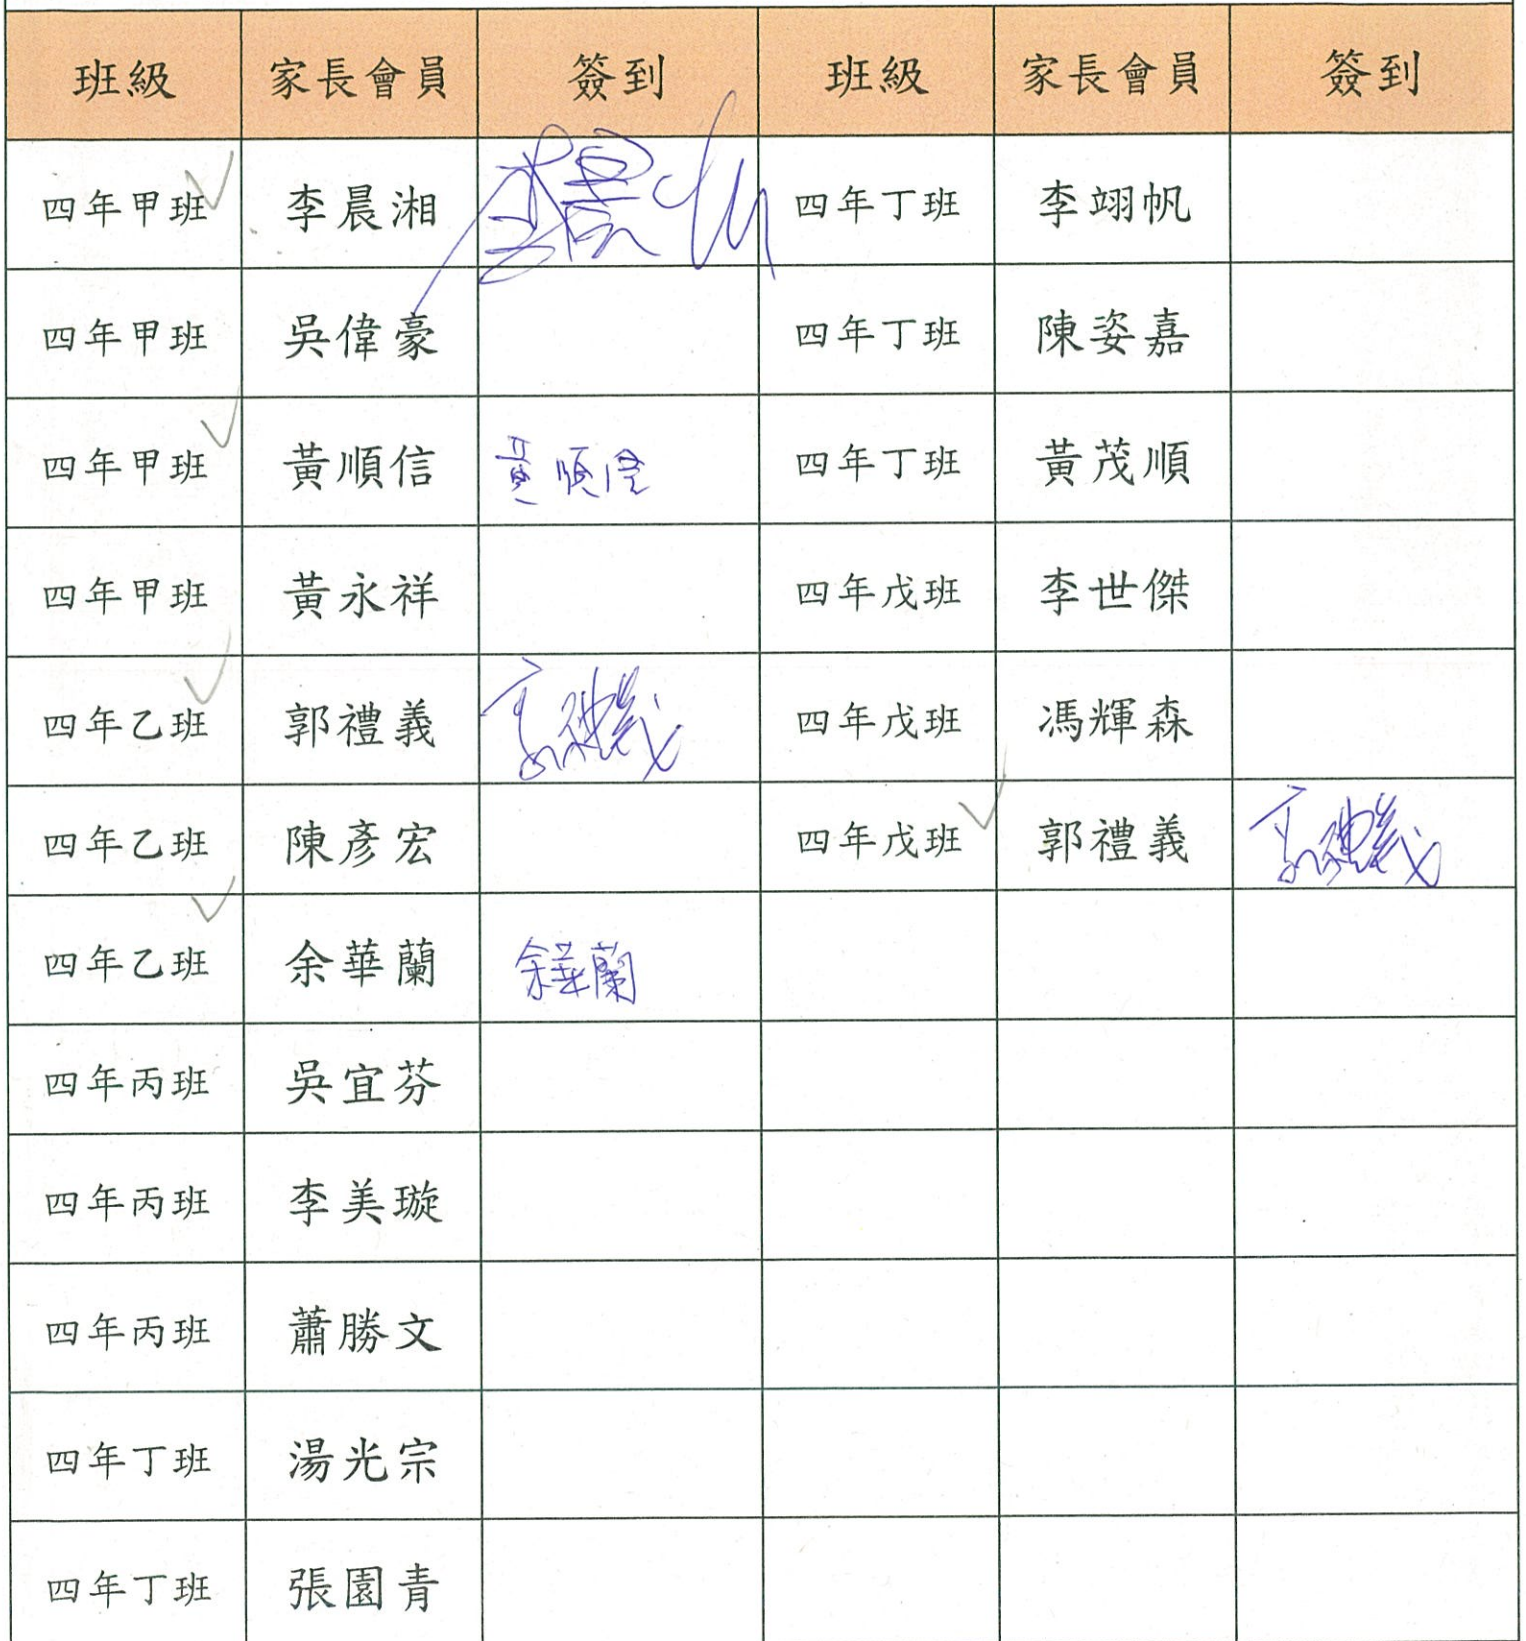 班級 家長會員 簽到 班級 家長會員 簽到
四年甲班 李晨湘 李晨湘 四年丁班 李翊帆
四年甲班 吳偉豪 四年丁班 陳姿嘉
四年甲班 黃順信 黃順信 四年丁班 黃茂順
四年甲班 黃永祥 四年戊班 李世傑
四年乙班 郭禮義 郭禮義 四年戊班 馮輝森
四年乙班 陳彥宏 四年戊班 郭禮義 郭禮義
四年乙班 余華蘭 余華蘭
四年丙班 吳宜芬
四年丙班 李美璇
四年丙班 蕭勝文
四年丁班 湯光宗
四年丁班 張園青